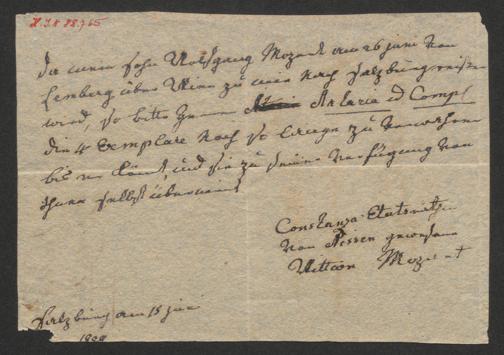 Da mein Sohn Wolfgang Mozart am 26 Juni von
Lemberg über Wien zu mir nach Salzburg
wird, so bitte Herrn Artaria et Comp
die 4 Exemplare noch so lange zu verwahren
bis er kömt, und sie zu seiner Verfügung von
ihnen selbst übernimt
Constanza Etatsräthin
von Nissen gewesene
Wittwe Mozart
Salzburg am 15 Juni